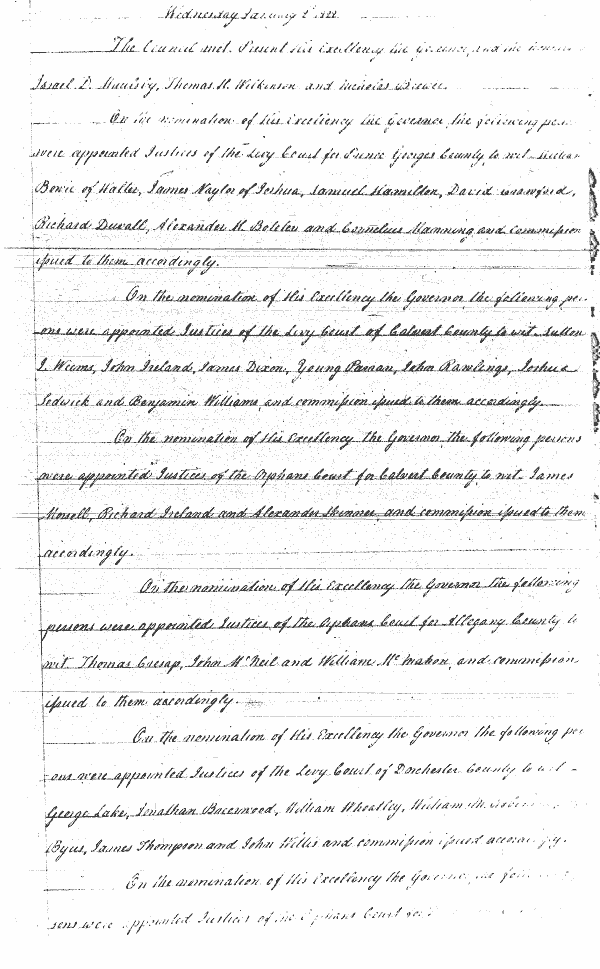 Wednesday January 2d 1822.
The Council met. Present His Excellency the Governor, and the
Israel D. Maulsby, Thomas H. Wilkinson and Nicholas Brewer.
On the nomination of His Excellency the Governor the following
were appointed Justices of the Levy Court for Prince Georges County, to wit William
Bowie of Walter, James Naylor of Joshua, Samuel Hamilton, David Crawford,
Richard Duvall, Alexander H. Boteler and Cornelius Manning and commission
issued to them accordingly.
On the nomination of His Excellency the Governor the following per
ons were appointed Justices of the Levy Court of Calvert County to wit. Sutton
I. Weems, John Ireland, James Dixon, Young Parran, John Rawlings, Joshua
Sedwick and Benjamin Williams, and commission issued to them accordingly.
On the nomination of His Excellency the Governor the following persons
were appointed Justices of the Orphans Court for Calvert County to wit. James
Morsell, Richard Ireland and Alexander Skinner, and commission issued to them
accordingly.
On the nomination of His Excellency the Governor the following
persons were appointed Justices of the Orphans Court for Allegany County to
wit Thomas Cresap, John McNeil and William McMahon, and commission
issued to them accordingly.
On the nomination of His Excellency the Governor the following per
ons were appointed Justices of the Levy Court of Dorchester County to wit -
George Lake, Jonathan William Wheatley, William
Byus, James Thompson and John Willis and commission issued accordingly.
On the nomination of His Excellency the Governor the
sons were appointed Justices of the Orphans Court for